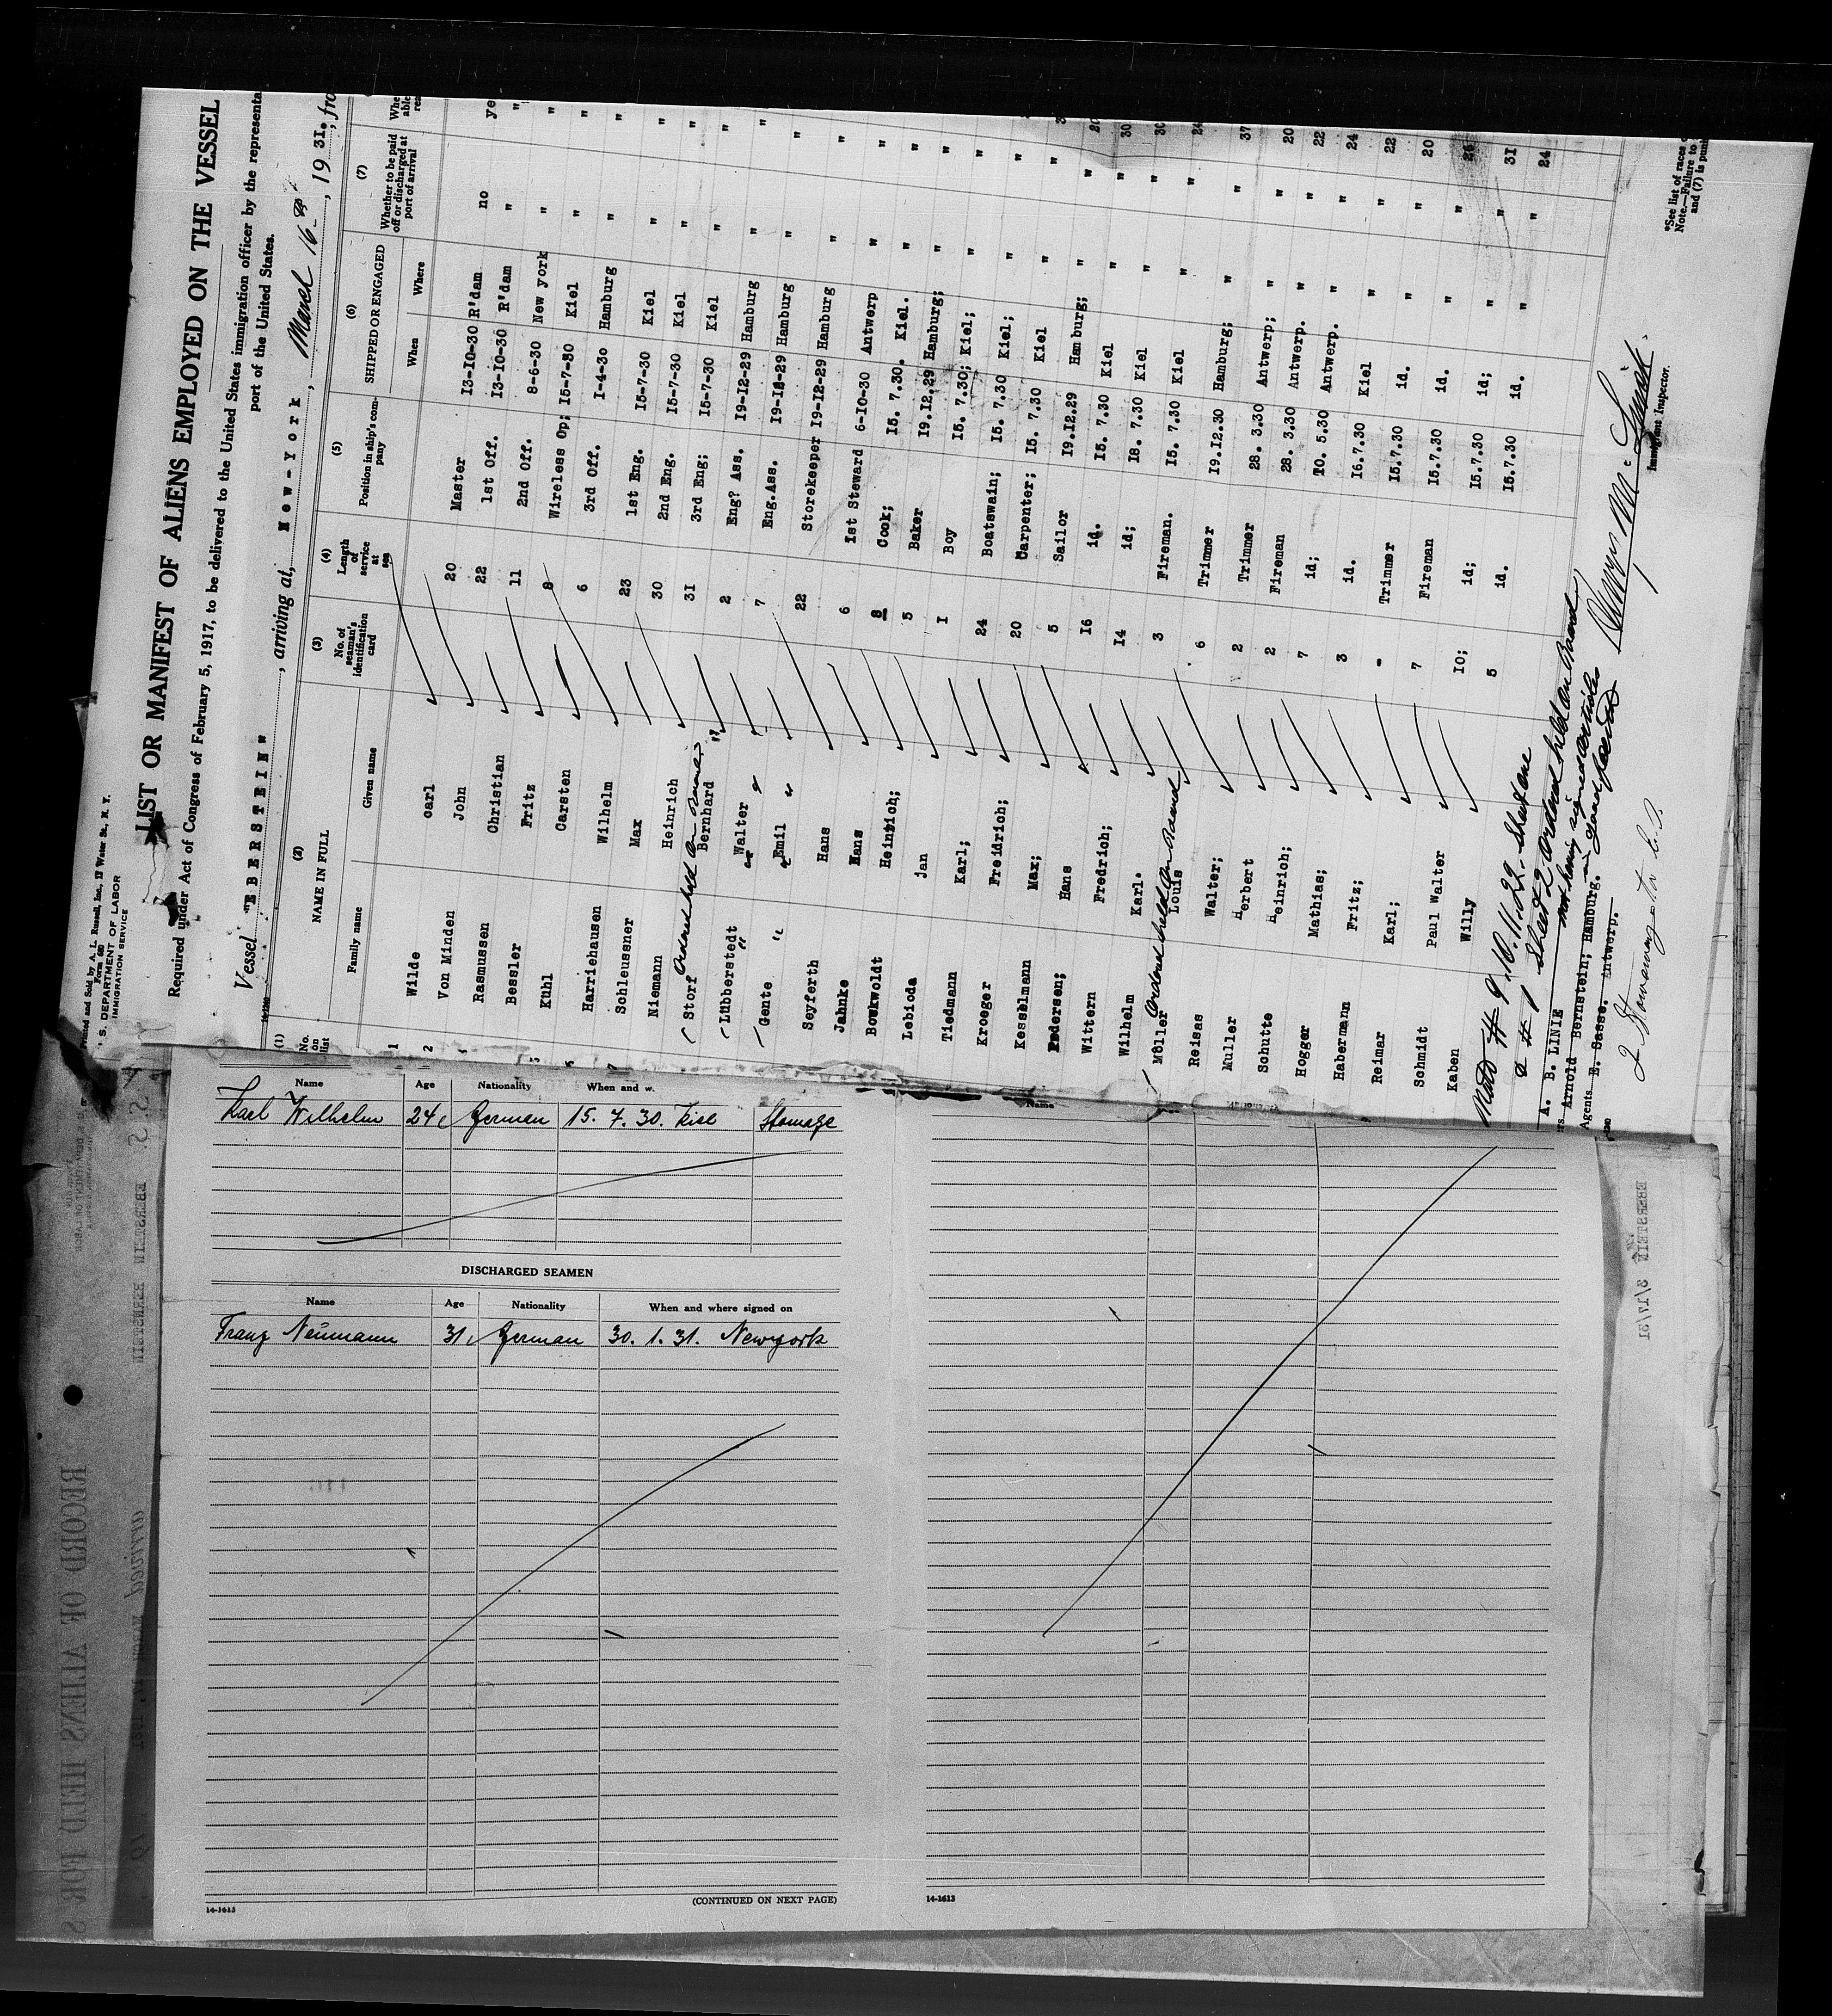 Printed and Sold by A. L. Russell, Inc., 17 Water St., N. Y.
Form 680
U. S. DEPARTMENT OF LABOR
IMMIGRATION SERVICE
LIST OR MANIFEST OF ALIENS EMPLOYED ON THE VESSEL
Required under Act of Congress of February 5, 1917, to be delivered to the United States immigration officer by the representa
port of the United States.
Vessel "EBERSTEIN", arriving at, New-York, March 16, 1931, fro
(1) (2) (3) (4) (5) (6) (7)
No. on list NAME IN FULL No. of seaman's identification card Length of service at sea Position in ship's company SHIPPED OR ENGAGED Whether to be paid off or discharged at port of arrival
Family name Given name When Where
1 Wilde Carl 20 Master 13-10-30 R'dam no ye
2 Von Minden John 22 1st Off. 13-10-30 R'dam " "
Rasmussen Christian 11 2nd Off. 8-6-30 New york " "
Bessler Fritz 8 Wireless Op; 15-7-30 Kiel " "
Kühl Carsten 6 3rd Off. 1-4-30 Hamburg " "
Harriehausen Wilhelm 23 1st Eng. 15-7-30 Kiel " "
Schleussner Max 30 2nd Eng. 15-7-30 Kiel " "
Niemann Heinrich 31 3rd Eng; 15-7-30 Kiel " "
Storf Bernhard 2 Eng? Ass. 19-12-29 Hamburg " "
Ordered held on board
Lübberstedt Walter 7 Eng.Ass. 19-12-29 Hamburg " "
Gente Emil 22 Storekeeper 19-12-29 Hamburg " "
Seyferth Hans 6 1st Steward 6-10-30 Antwerp " "
Jahnke Hans 8 Cook; 15. 7.30. Kiel. " "
Bookwoldt Heinrich; 5 Baker 19.12.29 Hamburg; " "
Lebioda Jan 1 Boy 15. 7.30; Kiel; " "
Tiedmann Karl; 24 Boatswain; 15. 7.30 Kiel; " "
Kroeger Freidrich; 20 Carpenter; 15. 7.30 Kiel " "
Kesselmann Max; 5 Sailor 19.12.29 Hamburg; " "
Pedersen; Hans 16 id. 15. 7.30 Kiel " "
Wittern Fredrich; 14 id; 18. 7.30 Kiel " "
Wilhelm Karl. 3 Fireman. 15. 7.30 Kiel " "
Möller Louis 6 Trimmer 19.12.30 Hamburg; " "
Ordered held on board
Reisas Walter; 2 Trimmer 28. 3.30 Antwerp; " "
Muller Herbert 2 Fireman 28. 3.30 Antwerp. " "
Schutte Heinrich; 7 id; 10. 5.30 Antwerp. " "
Hogger Mathias; 3 id. 16.7.30 Kiel " "
Habermann Fritz; - Trimmer 15.7.30 id. " "
Reimar Karl; 7 Fireman 15.7.30 id. " "
Schmidt Paul Walter 10; id; 15.7.30 id; " "
Kaben Willy 5 id. 15.7.30 id. " "
# 9, 10, 11, 22 Sheet one
# 1 Sheet 2 ordered held on board
not having signed articles
in good faith
A. B. LINIE
Arnold Bernstein; Hamburg.
Agents E. Sasse. Antwerp.
Immigrant Inspector.
*See list of races
Note.—Failure to
and (7) is puni
Name Age Nationality When and w.
Karl Wilhelm 24 German 15. 7. 30. Kiel
DISCHARGED SEAMEN
Name Age Nationality When and where signed on
Franz Neümann 31 German 30. 1. 31. Newyork
(CONTINUED ON NEXT PAGE)
14-1613
Name
14-1613
EBERSTEIN 3/17/31
EBERSTEIN
RECORD OF ALIENS HELD FOR S
arrived